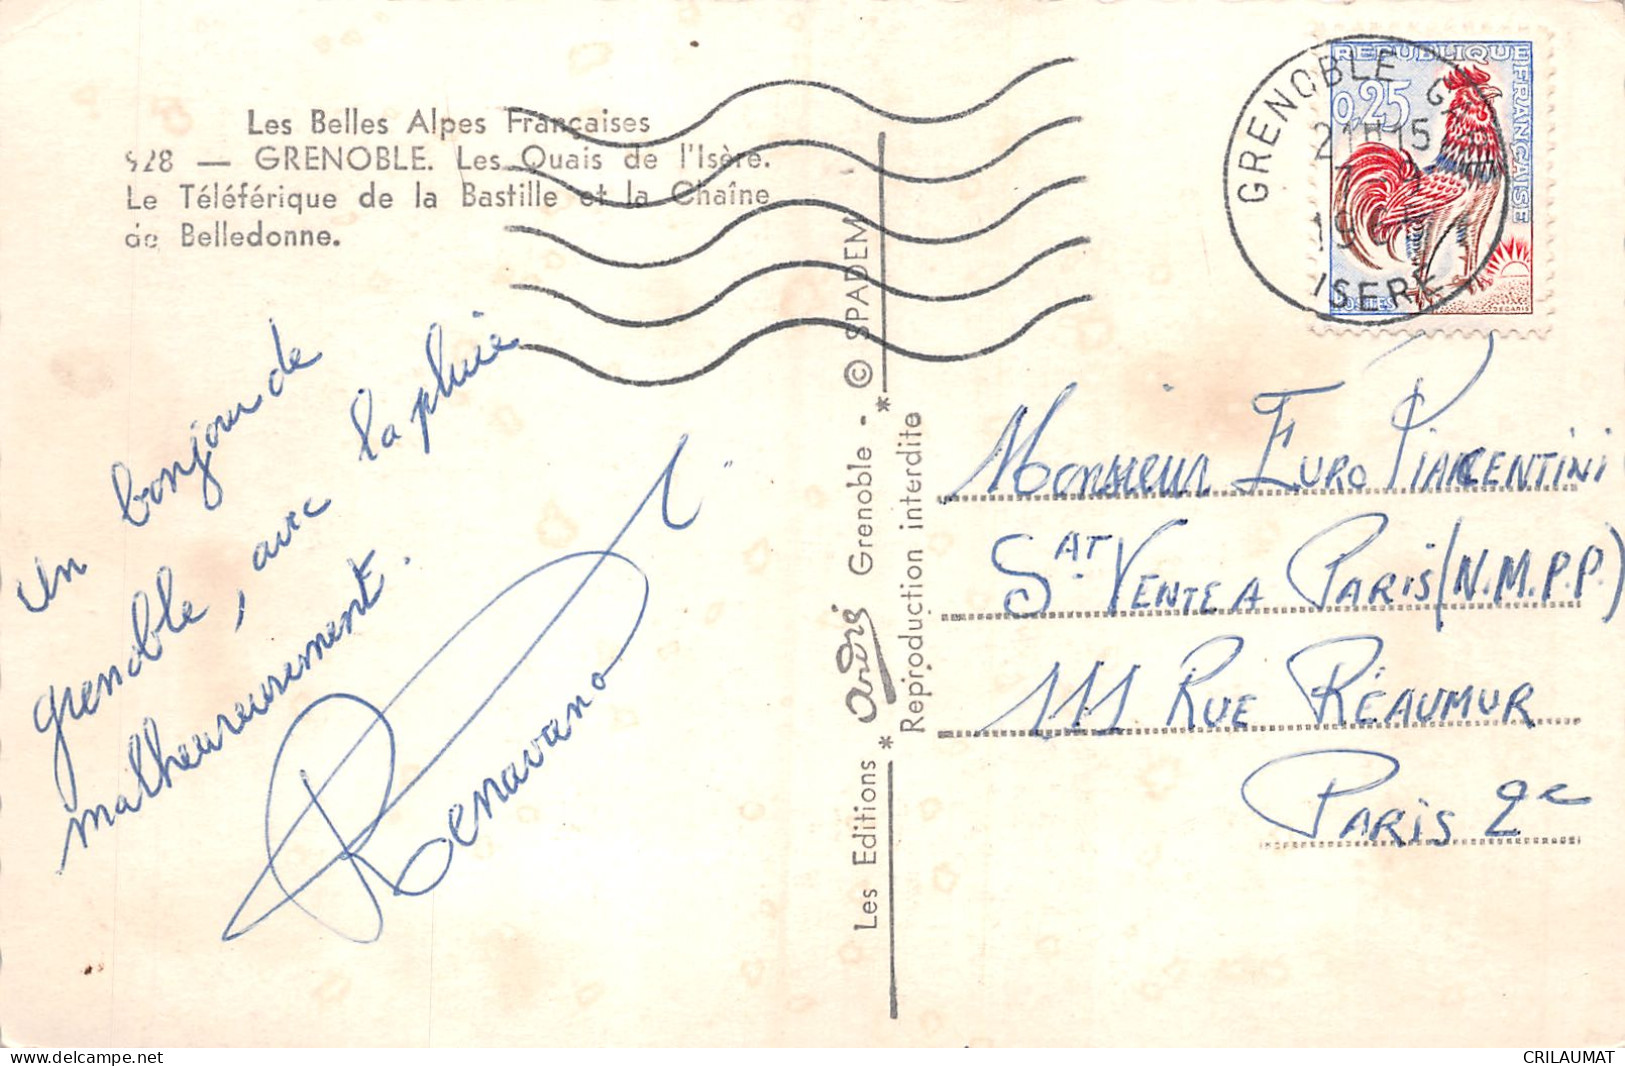 Les Belles Alpes Françaises
928 — GRENOBLE. Les Quais de l'Isère.
Le Téléférique de la Bastille et la Chaîne
de Belledonne.
un bonjour de
grenoble, avec la pluie
malheureusement.
Les Editions * André Grenoble - © SPADEM *
Reproduction interdite
REPUBLIQUE FRANÇAISE
0,25
POSTES
DECARIS
GRENOBLE G
21H15
7
196
ISERE
Monsieur Euro PIACENTINI
SAT VENTE A PARIS (N.M.P.P.)
111 RUE RÉAUMUR
PARIS 2e
delcampe.net
CRILAUMAT